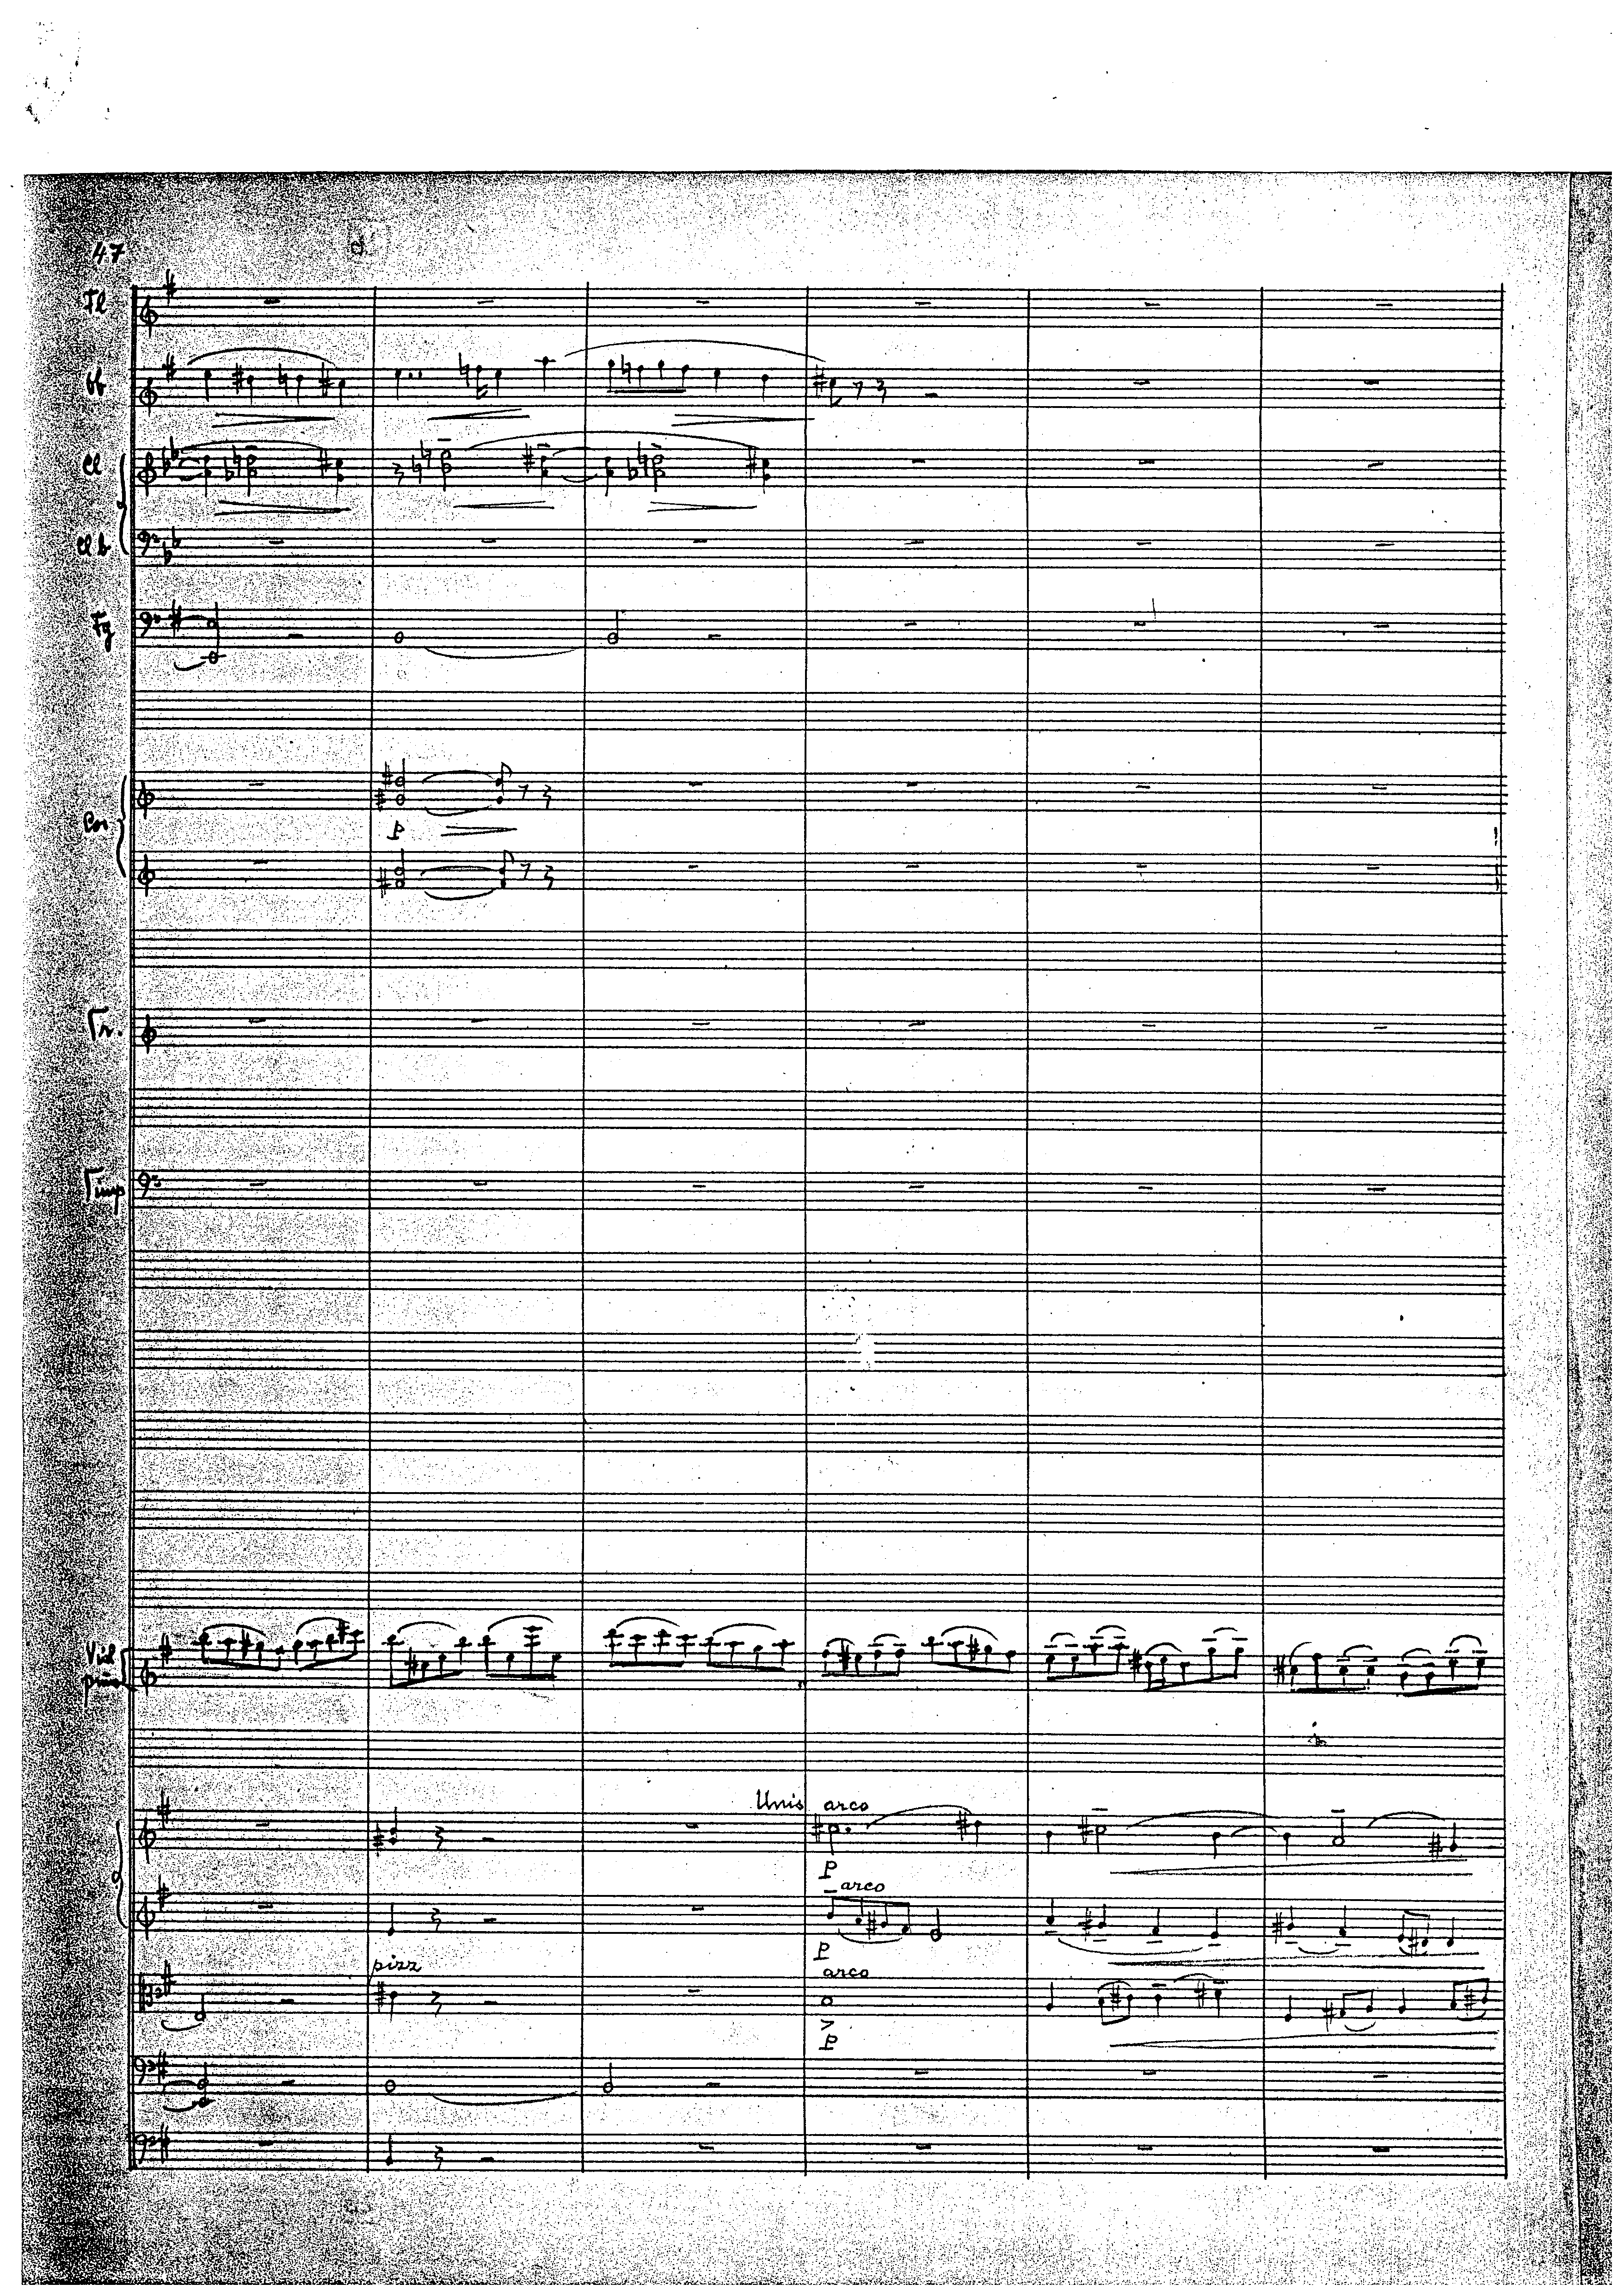 47
d
Fl
Ob
Cl
Cl b
Fg
Cor
p
Tr.
Timp
Viol
princ
Unis arco
p
arco
p
pizz
arco
p